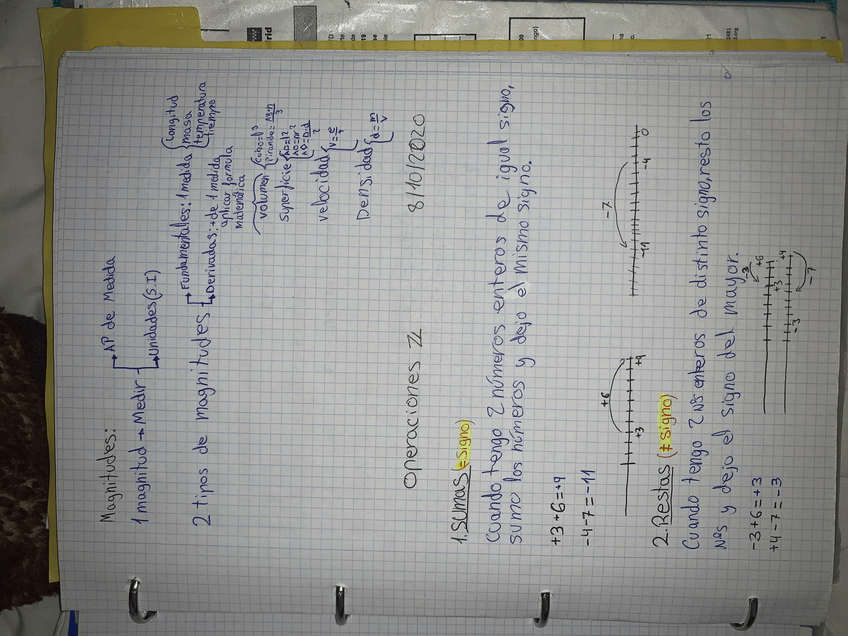 Magnitudes:
1 magnitud → Medir
AP de Medida
Unidades (S.I)
2 tipos de magnitudes
Fundamentales: 1 medida
longitud
masa
temperatura
tiempo
Derivadas: + de 1 medida
aplicar formula
matemática
volumen
Cubo = l³
superficie
velocidad
Densidad
d = m/v
Operaciones Z
8/10/2020
1. Sumas (= signo)
Cuando tengo 2 números enteros de igual signo,
sumo los números y dejo el mismo signo.
+3+6=+9
-4-7=-11
+6
+3
+9
-7
-11
-4
0
2. Restas (≠ signo)
Cuando tengo 2 nºs enteros de distinto signo, resto los
nºs y dejo el signo del mayor.
-3+6=+3
+4-7=-3
-3
+3
+6
-3
+4
-7